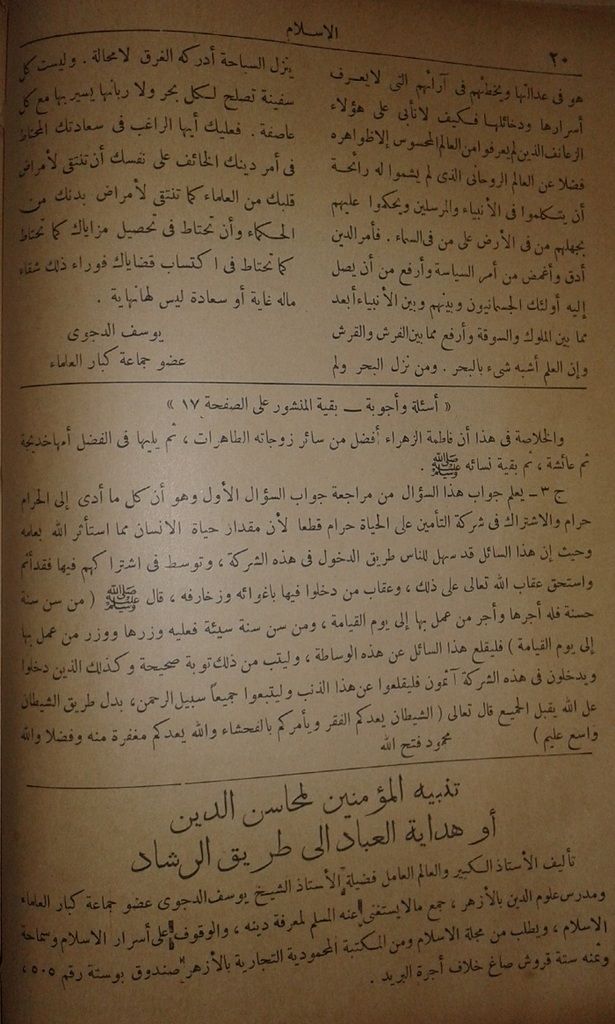 ٢٠
الإسلام
هو فى عدالتها ويخطئهم فى آرائهم التى لا يعرف
أسرارها ودخائلها فكيف لا تأبى على هؤلاء
الزعانف الذين لم يعرفوا من العالم المحسوس إلا ظواهره
فضلا عن العالم الروحانى الذى لم يشموا له رائحة
أن يتكلموا فى الأنبياء والمرسلين ويحكموا عليهم
بجهلهم من فى الأرض على من فى السماء . فأمر الدين
أدق وأغمض من أمر السياسة وأرفع من أن يصل
إليه أولئك الجسمانيون وبينهم وبين الأنبياء أبعد
مما بين الملوك والسوقة وأرفع مما بين الفرش والعرش
وإن العلم أشبه شىء بالبحر . ومن نزل البحر ولم
ينزل السباحة أدركه الغرق لا محالة . وليست كل
سفينة تصلح لكل بحر ولا ربانها يسير بها مع كل
عاصفة . فعليك أيها الراغب فى سعادتك المحتاط
فى أمر دينك الخائف على نفسك أن تنتقى لأمراض
قلبك من العلماء كما تنتقى لأمراض بدنك من
الحكماء وأن تحتاط فى تحصيل مزاياك كما تحتاط
كما تحتاط فى اكتساب قضاياك فوراء ذلك شقاء
ماله غاية أو سعادة ليس لها نهاية .
يوسف الدجوى
عضو جماعة كبار العلماء
« أسئلة وأجوبة ــ بقية المنشور على الصفحة ١٧ »
والخلاصة فى هذا أن فاطمة الزهراء أفضل من سائر زوجاته الطاهرات ، ثم يليها فى الفضل أمها خديجة
ثم عائشة ، ثم بقية نسائه ﷺ .
ج ٣ ــ يعلم جواب هذا السؤال من مراجعة جواب السؤال الأول وهو أن كل ما أدى إلى الحرام
حرام والاشتراك فى شركة التأمين على الحياة حرام قطعا لأن مقدار حياة الانسان مما استأثر الله بعلمه
وحيث إن هذا السائل قد سهل للناس طريق الدخول فى هذه الشركة ، وتوسط فى اشتراكهم فيها فقد أثم
واستحق عقاب الله تعالى على ذلك ، وعقاب من دخلوا فيها باغوائه وزخارفه ، قال ﷺ ( من سن سنة
حسنة فله أجرها وأجر من عمل بها إلى يوم القيامة ، ومن سن سنة سيئة فعليه وزرها ووزر من عمل بها
إلى يوم القيامة ) فليقلع هذا السائل عن هذه الوساطة ، وليتب من ذلك توبة صحيحة وكذلك الذين دخلوا
ويدخلون فى هذه الشركة آثمون فليقلعوا عن هذا الذنب وليتبعوا جميعاً سبيل الرحمن، بدل طريق الشيطان
عل الله يقبل الجميع قال تعالى ( الشيطان يعدكم الفقر ويأمركم بالفحشاء والله يعدكم مغفرة منه وفضلا والله
واسع عليم ) محمود فتح الله
تنبيه المؤمنين لمحاسن الدين
أو هداية العباد الى طريق الرشاد
تأليف الأستاذ الكبير والعالم العامل فضيلة الأستاذ الشيخ يوسف الدجوى عضو جماعة كبار العلماء
ومدرس علوم الدين بالأزهر ، جمع مالا يستغنى عنه المسلم لمعرفة دينه ، والوقوف على أسرار الاسلام وسماحة
الاسلام ، ويطلب من مجلة الاسلام ومن المكتبة المحمودية التجارية بالأزهر صندوق بوستة رقم ٥٠٥ ،
وثمنه ستة قروش صاغ خلاف أجرة البريد .